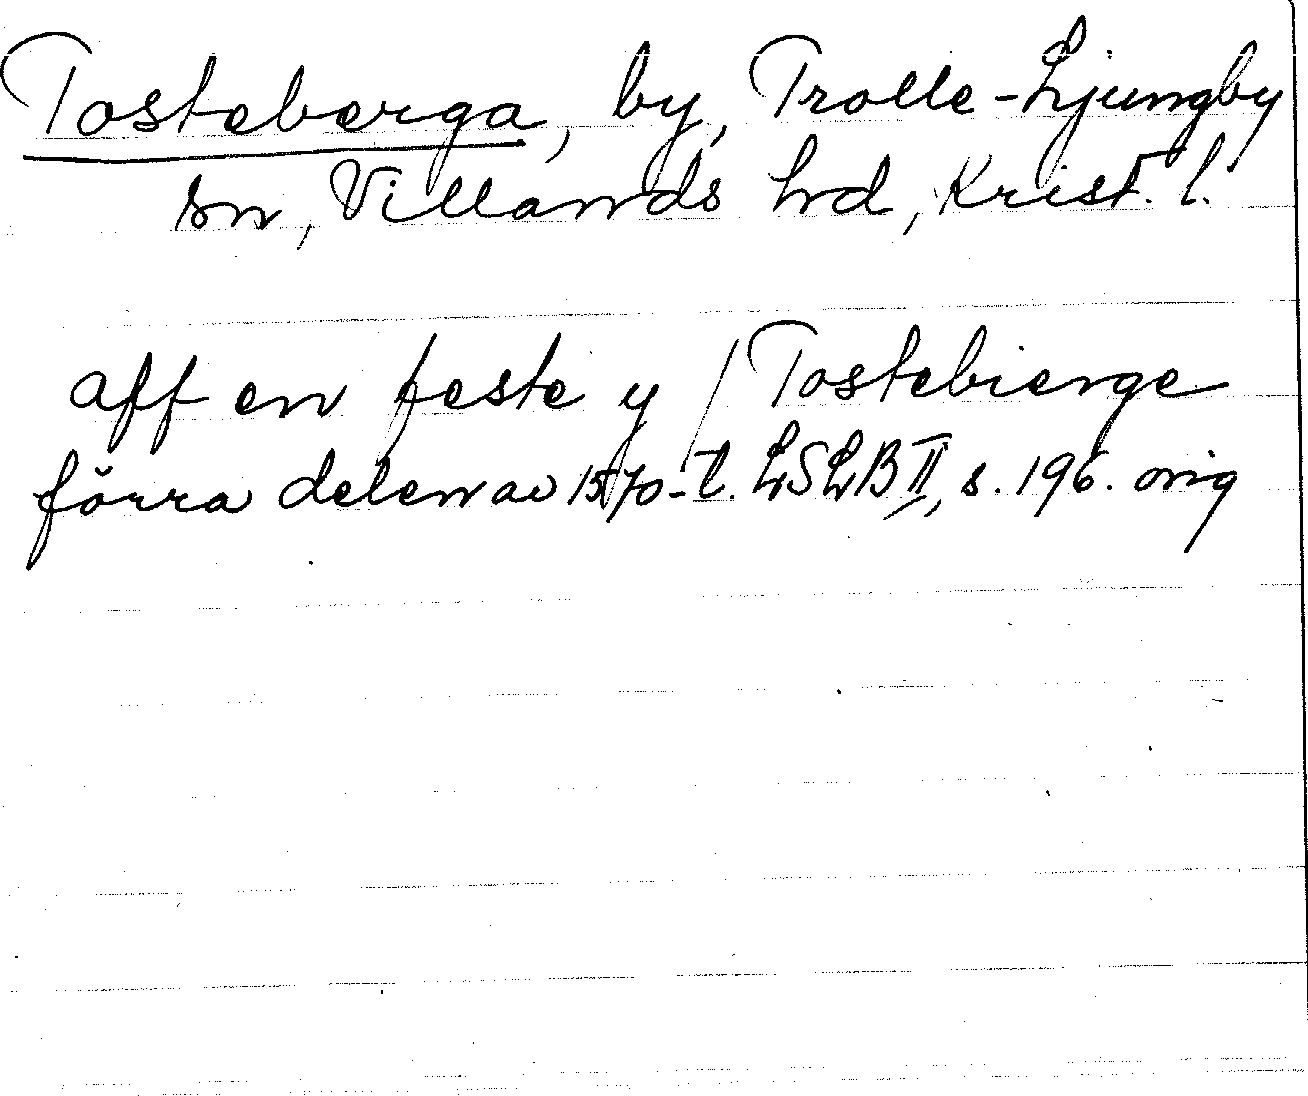 Tosteberga, by, Trolle-Ljungby
sn, Villands hd, Krist. l.
aff en feste y / Tostebierge
förra delen av 1570-t. LSLB II, s. 196. orig